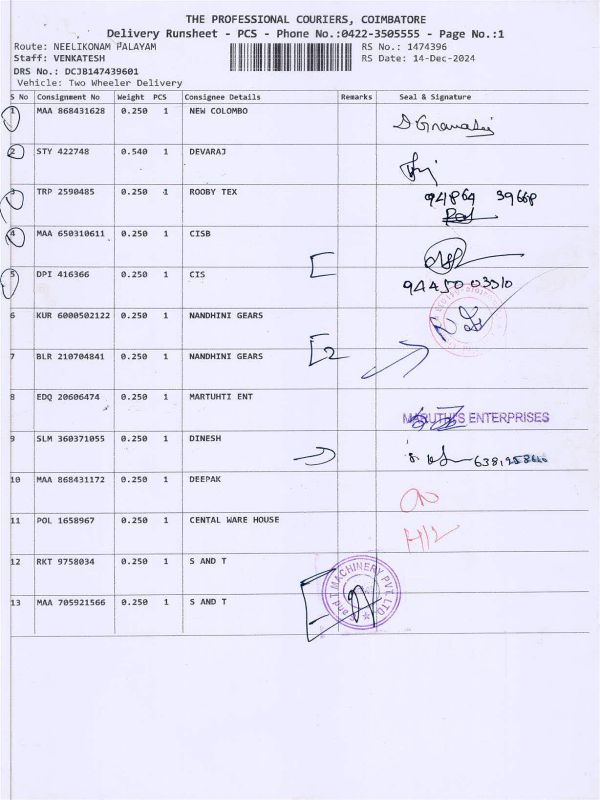 THE PROFESSIONAL COURIERS, COIMBATORE
Delivery Runsheet - PCS - Phone No.:0422-3505555 - Page No.:1
Route: NEELIKONAM PALAYAM RS No.: 1474396
Staff: VENKATESH RS Date: 14-Dec-2024
DRS No.: DCJB147439601
Vehicle: Two Wheeler Delivery
S No Consignment No Weight PCS Consignee Details Remarks Seal & Signature
1 MAA 868431628 0.250 1 NEW COLOMBO
2 STY 422748 0.540 1 DEVARAJ
3 TRP 2590485 0.250 1 ROOBY TEX 94864 39668
4 MAA 650310611 0.250 1 CISB
5 DPI 416366 0.250 1 CIS 94450 03310
6 KUR 6000502122 0.250 1 NANDHINI GEARS
7 BLR 210704841 0.250 1 NANDHINI GEARS 2
8 EDQ 20606474 0.250 1 MARTUHTI ENT
MARUTHI'S ENTERPRISES
9 SLM 360371055 0.250 1 DINESH
10 MAA 868431172 0.250 1 DEEPAK
11 POL 1658967 0.250 1 CENTAL WARE HOUSE
12 RKT 9758034 0.250 1 S AND T
S and T MACHINERY PVT. LTD.
13 MAA 705921566 0.250 1 S AND T